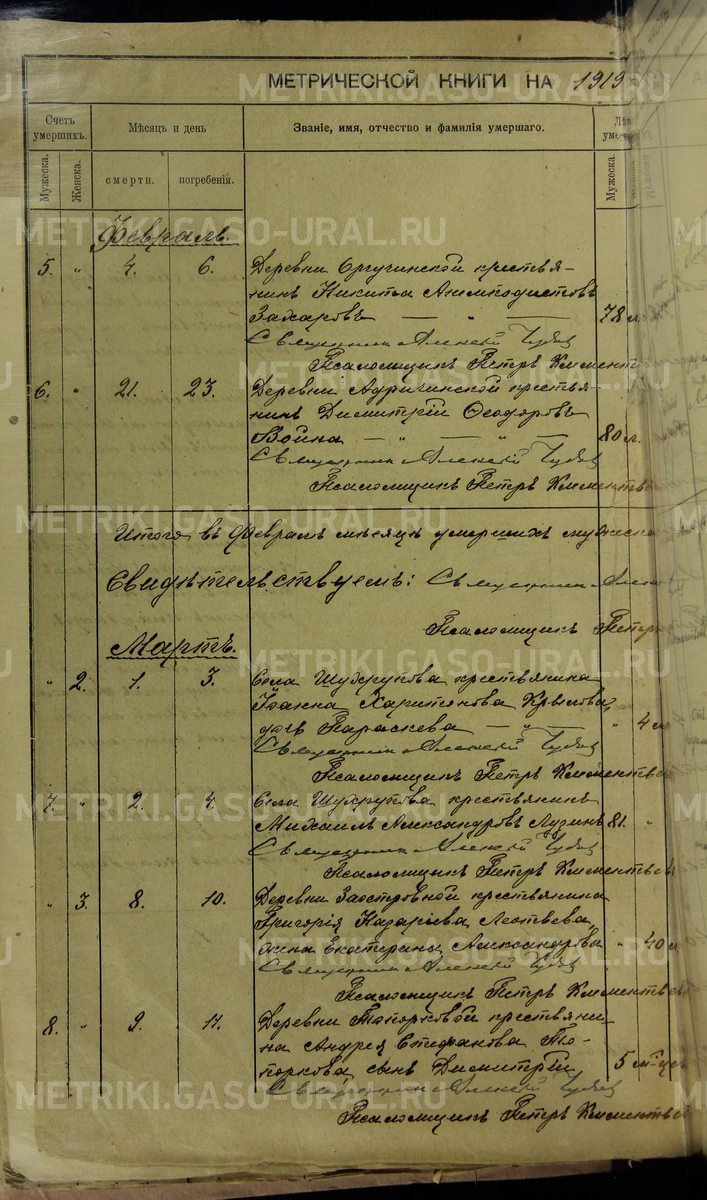 МЕТРИЧЕСКОЙ КНИГИ НА 1919
Счетъ умершихъ.
Мѣсяцъ и день
Званіе, имя, отчество и фамилія умершаго.
Лѣ
уме
Мужеска.
Женска.
смерти.
погребенія.
Мужеска.
Февраль.
5. " 4. 6. Деревни Сергучинской крестья-
нинъ Никита Анемподистовъ
Захаровъ — " — 78 л.
Священникъ Алексій
Псаломщикъ Петръ Климент
6. " 21. 23. Деревни крестья-
нинъ Димитрій Ѳеодоровъ
Война — " — " — 80 л.
Священникъ Алексій
Псаломщикъ Петръ Климентьев
Итого въ Февралѣ мѣсяцѣ умершихъ мужеска
Свидѣтельствуемъ: Священникъ Алек
Псаломщикъ Петръ
Мартъ.
" 2. 1. 3. Села Шухрупова крестьянина
Іоанна Харитонова Крылова
дочь Параскева — " — " 4 л
Священникъ Алексій
Псаломщикъ Петръ Климентьев
7. " 2. 4. Села Шухрупова крестьянинъ
Михаилъ Александровъ Лузинъ 81. "
Священникъ Алексій
Псаломщикъ Петръ Климентьев
" 3. 8. 10. Деревни Заостровной крестьянина
Григорія Назаріева Леонтьева
жена Екатерина Александрова " 40 л
Священникъ Алексій
Псаломщикъ Петръ Климентьев
8. " 9. 11. Деревни Топорковой крестьяни-
на Андрея Стефанова То-
поркова сынъ Димитрій 5 м-цъ
Священникъ Алексій
Псаломщикъ Петръ Климентьев
METRIKI.GASO-URAL.RU